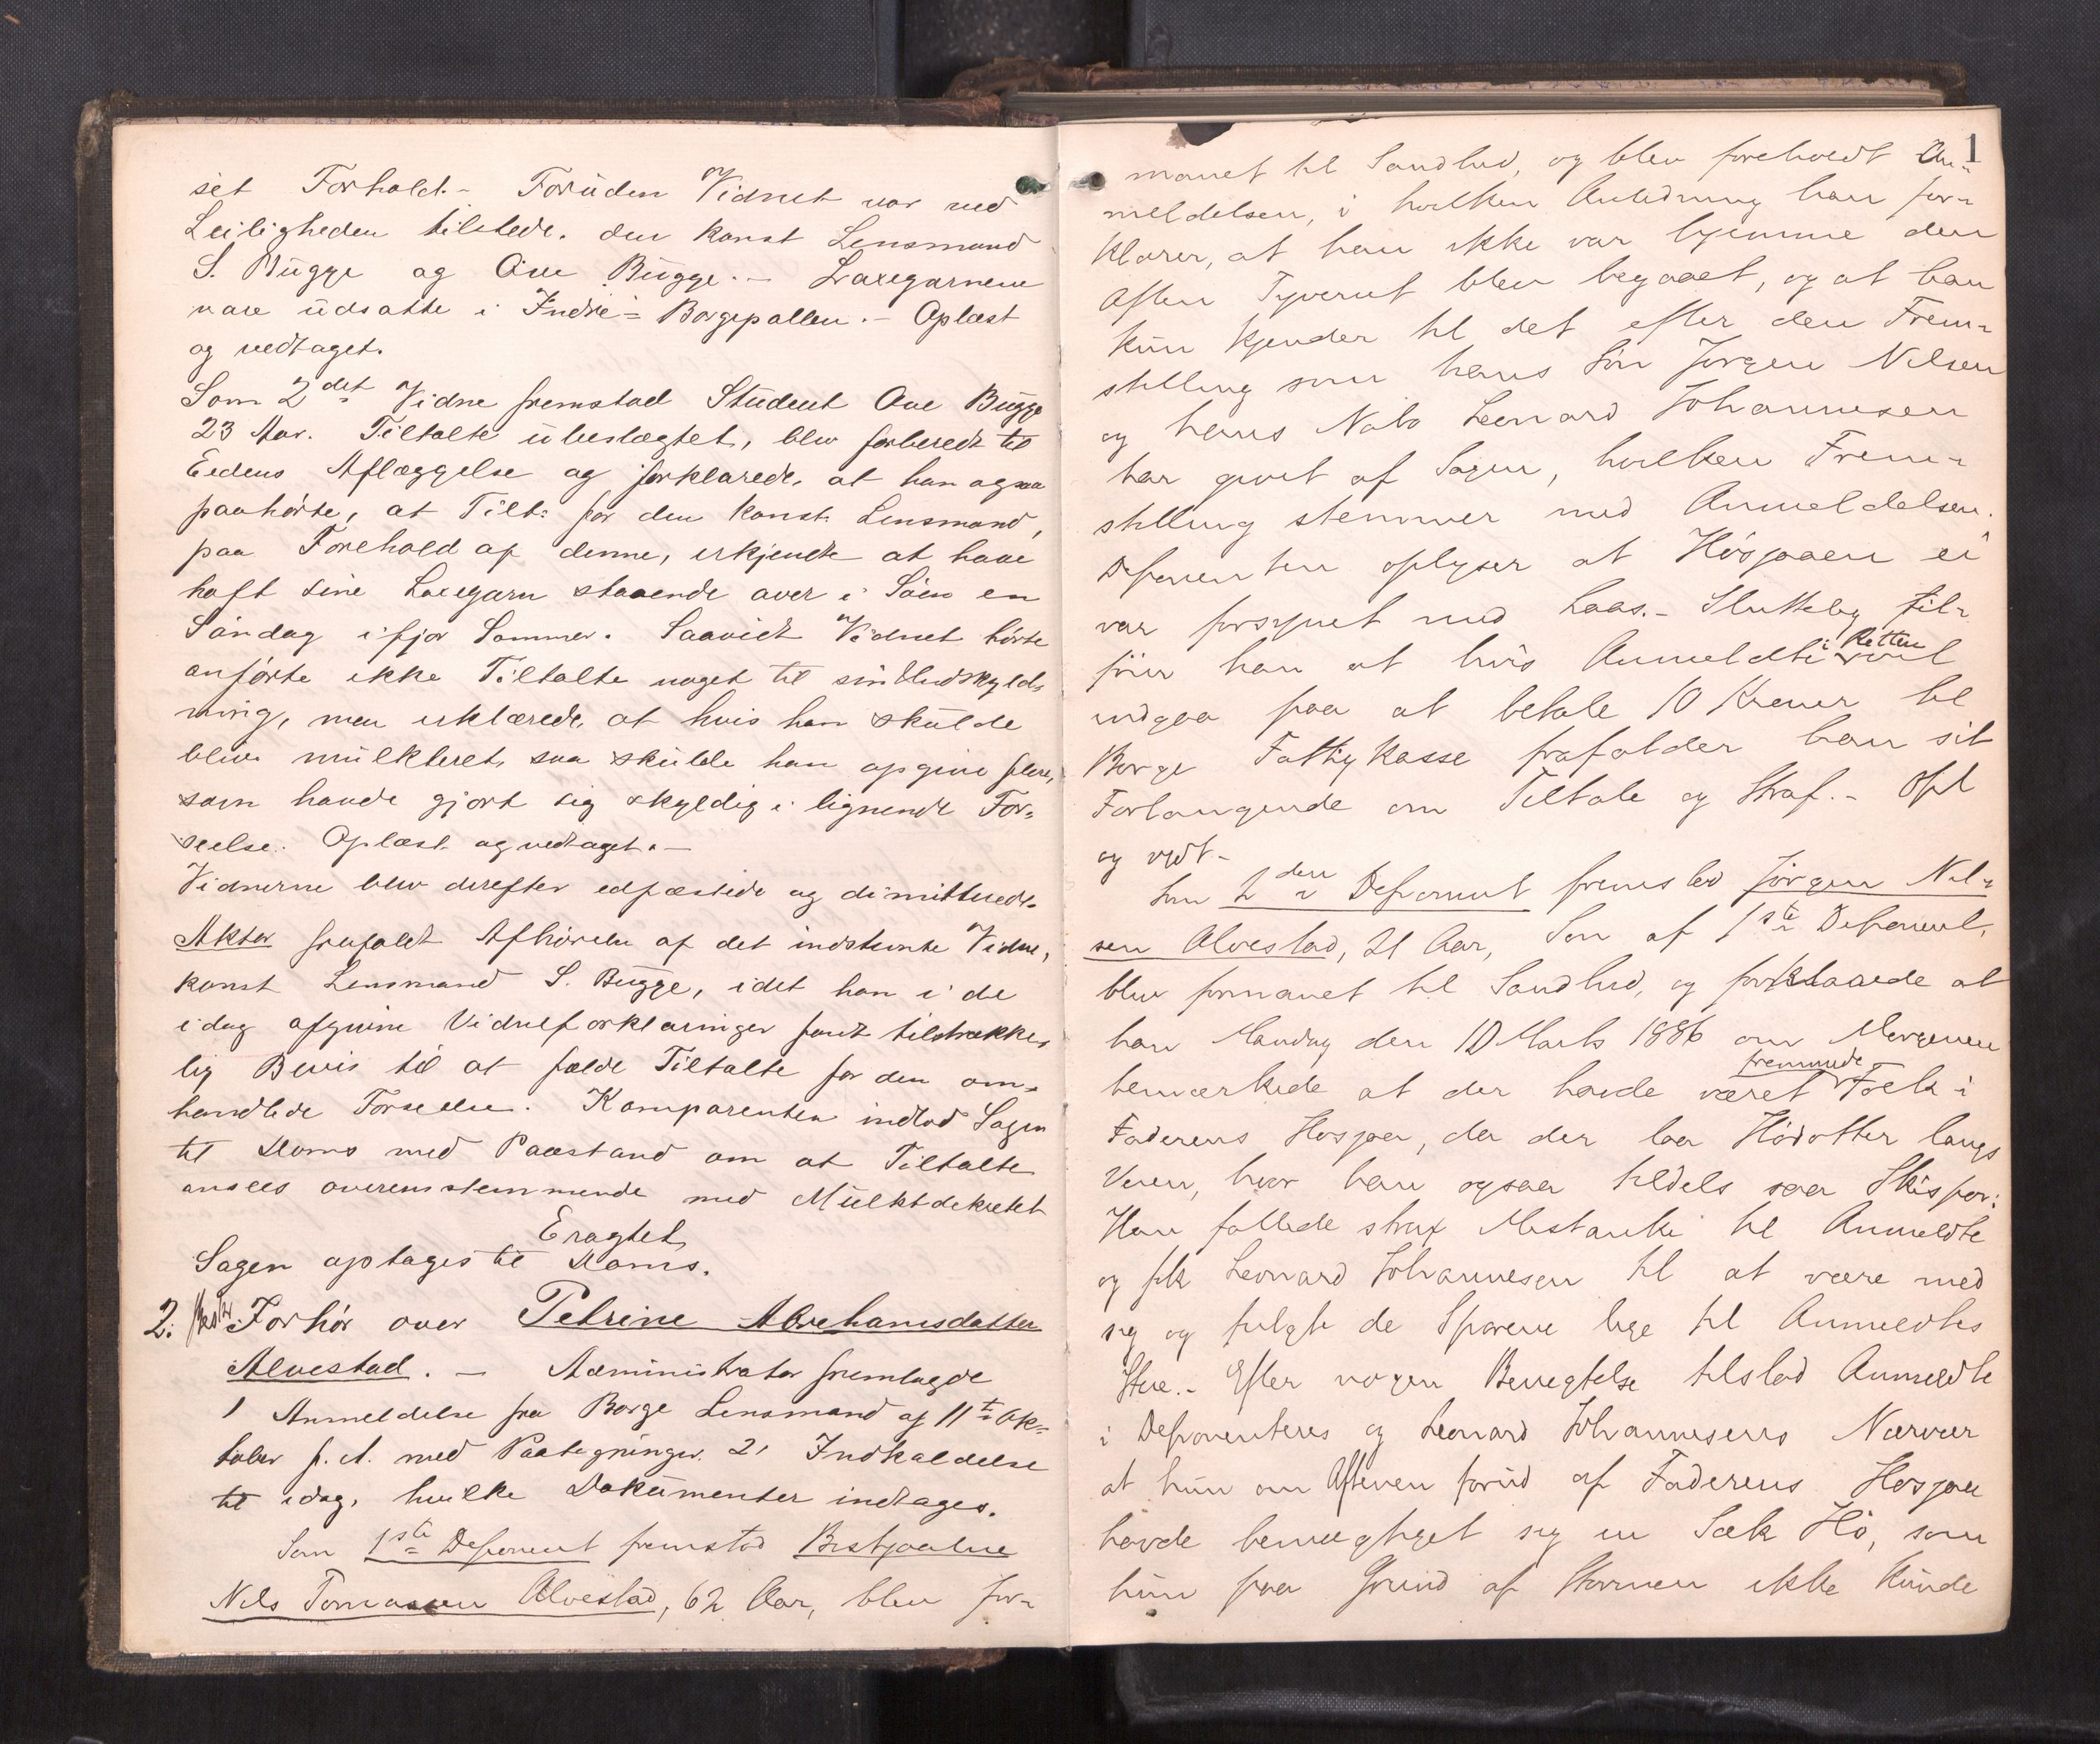 set Forhold. - Foruden Vidnet var ved
Leiligheden tilstede, den konst Lensmand
S. Bugge og Ove Bugge. - Laxegarnene
vare udsatte i Indre- Borgepollen. - Oplæst
og vedtaget.
Som 2det Vidne fremstod Student Ove Bugge
23 Aar. Tiltalte ubeslægtet, blev forberedt til
Eedens Aflæggelse og forklarede, at han ogsaa
paahørte, at Tilt: for den konst: Lensmand,
paa Forehold af denne, erkjendte at have
haft sine Laxegarn staaende over i Søen en
Søndag ifjor Sommer. Saavidt Vidnet hørte
anførte ikke Tiltalte noget til sin Undskyld-
ning, men erklærede, at hvis han skulde
blive mulkteret, saa skulde han opgive flere,
som havde gjort sig skyldig i lignende For-
seelse. Oplæst og vedtaget. -
Vidnerne blev derefter edfæstede og dimitterede.
Aktor frafaldt Afhørelse af det indstevnte Vidne,
konst Lensmand S. Bugge, idet han i de
idag afgivne Vidneforklaringer fandt tilstrække-
lig Bevis til at fælde Tiltalte for den om-
handlede Forseelse. Komparenten indlod Sagen
til Doms med Paastand om at Tiltalte
ansees overensstemmende med Mulktdekretet
Eragtet
Sagen optages til Doms.
2. Forhør over Petrine Abrehamsdatter
Alvestad. - Administrator fremlagde
1 Anmeldelse fra Borge Lensmand af 11te Ok-
tober f. A. med Paategninger. 2, Indkaldelse
til idag, hvilke Dokumenter indtages.
Som 1ste Deponent fremstod Bestyrer
Nils Tomassen Alvestad, 62 Aar, blev for-
1
manet til Sandhed, og blev foreholdt An-
meldelsen, i hvilken Anledning han for-
klarer, at han ikke var hjemme den
Aften Tyveriet blev begaaet, og at han
kun kjender til det efter den Frem-
stilling som hans Søn Jørgen Nilsen
og hans Nabo Leonard Johannesen
har givet af Sagen, hvilken Frem-
stilling stemmer med Anmeldelsen.
Deponenten oplyser at Høsjaaen ei
var forsynet med Laas. - Sluttelig til-
føier han at hvis Anmeldte i Retten vil
indgaa paa at betale 10 Kroner til
Borge Fattigkasse frafalder han sit
Forlangende om Tiltale og Straf. - Opl
og vedt -
Som 2den Deponent fremstod Jørgen Nil-
sen Alvestad, 21 Aar, Søn af 1ste Deponent,
blev formanet til Sandhed, og forklarede at
han Mandag den 1 Marts 1886 om Morgenen
bemærkede at der havde været fremmede Folk i
Faderens Høsjaa, da der laa Hødotter langs
Veien, hvor han ogsaa tildels saa Skispor:
Han fattede strax Mistanke til Anmeldte
og fik Leonard Johannesen til at være med
sig og fulgte de Sporene lige til Anmeldtes
Stue. - Efter nogen Benegtelse tilstod Anmeldte
i Deponentens og Leonard Johannesens Nærvær
at hun om Aftenen forud af Faderens Høsjaa
havde bemægtiget sig en Sæk Hø, som
hun paa Grund af Stormen ikke kunde